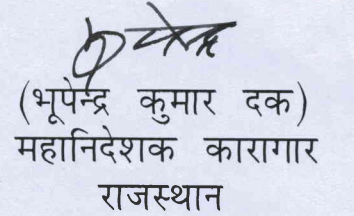 (भूपेन्द्र कुमार दक)
महानिदेशक कारागार
राजस्थान